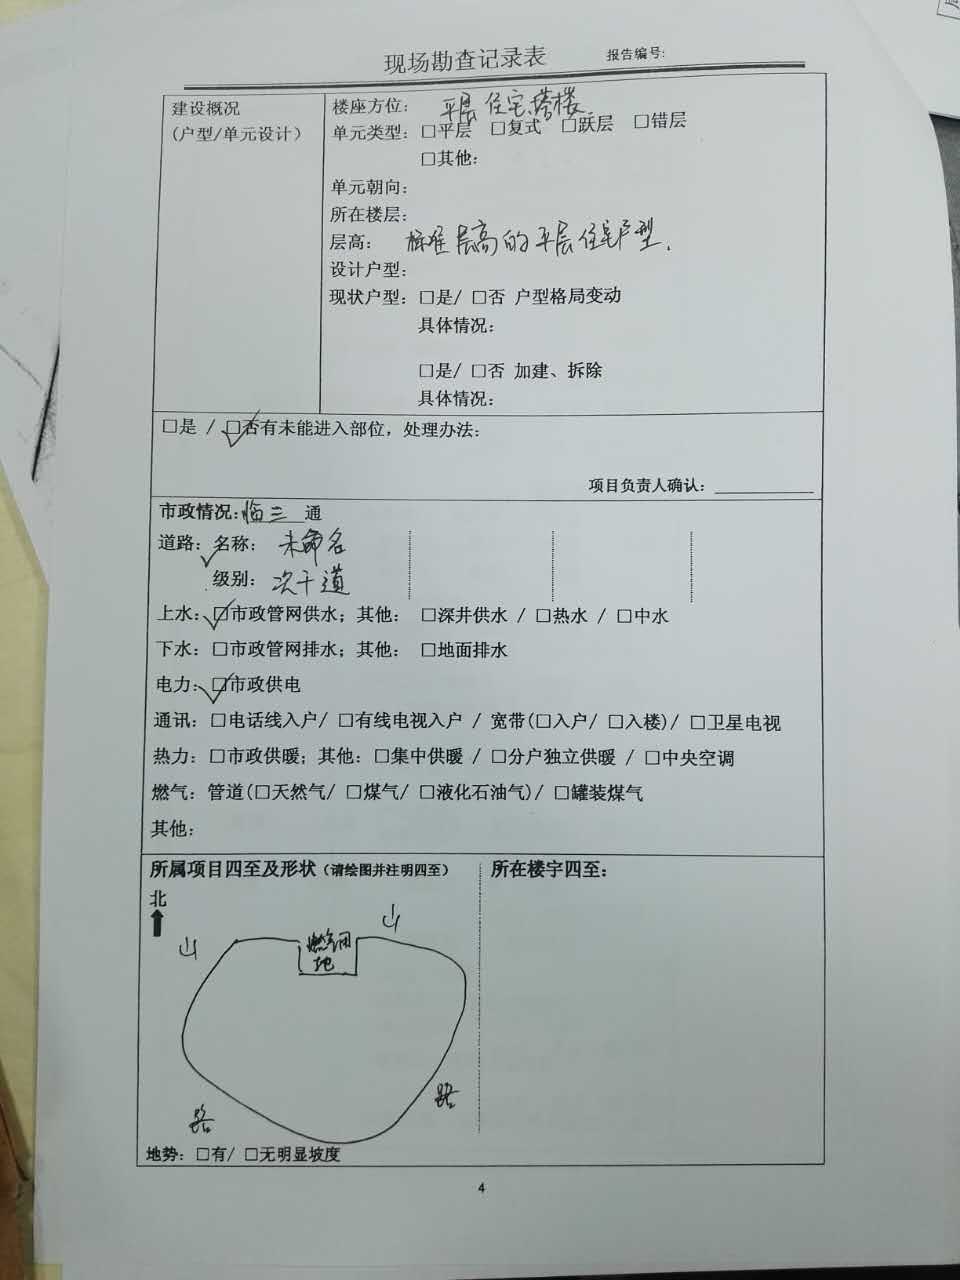 现场勘查记录表 报告编号:
建设概况
(户型/单元设计)
楼座方位: 平层住宅,塔楼
单元类型: □平层 □复式 □跃层 □错层
□其他:
单元朝向:
所在楼层:
层高: 标准层高的平层住宅户型.
设计户型:
现状户型: □是/ □否 户型格局变动
具体情况:
□是/ □否 加建、拆除
具体情况:
□是 / ☑否有未能进入部位, 处理办法:
项目负责人确认:
市政情况: 临三 通
道路: ✓名称: 未命名
级别: 次干道
上水: ☑市政管网供水; 其他: □深井供水 / □热水 / □中水
下水: □市政管网排水; 其他: □地面排水
电力: ☑市政供电
通讯: □电话线入户/ □有线电视入户 / 宽带(□入户/ □入楼)/ □卫星电视
热力: □市政供暖; 其他: □集中供暖 / □分户独立供暖 / □中央空调
燃气: 管道(□天然气/ □煤气/ □液化石油气)/ □罐装煤气
其他:
所属项目四至及形状 (请绘图并注明四至)
北
山
山
燃气用
地
路
路
地势: □有/ □无明显坡度
所在楼宇四至:
4